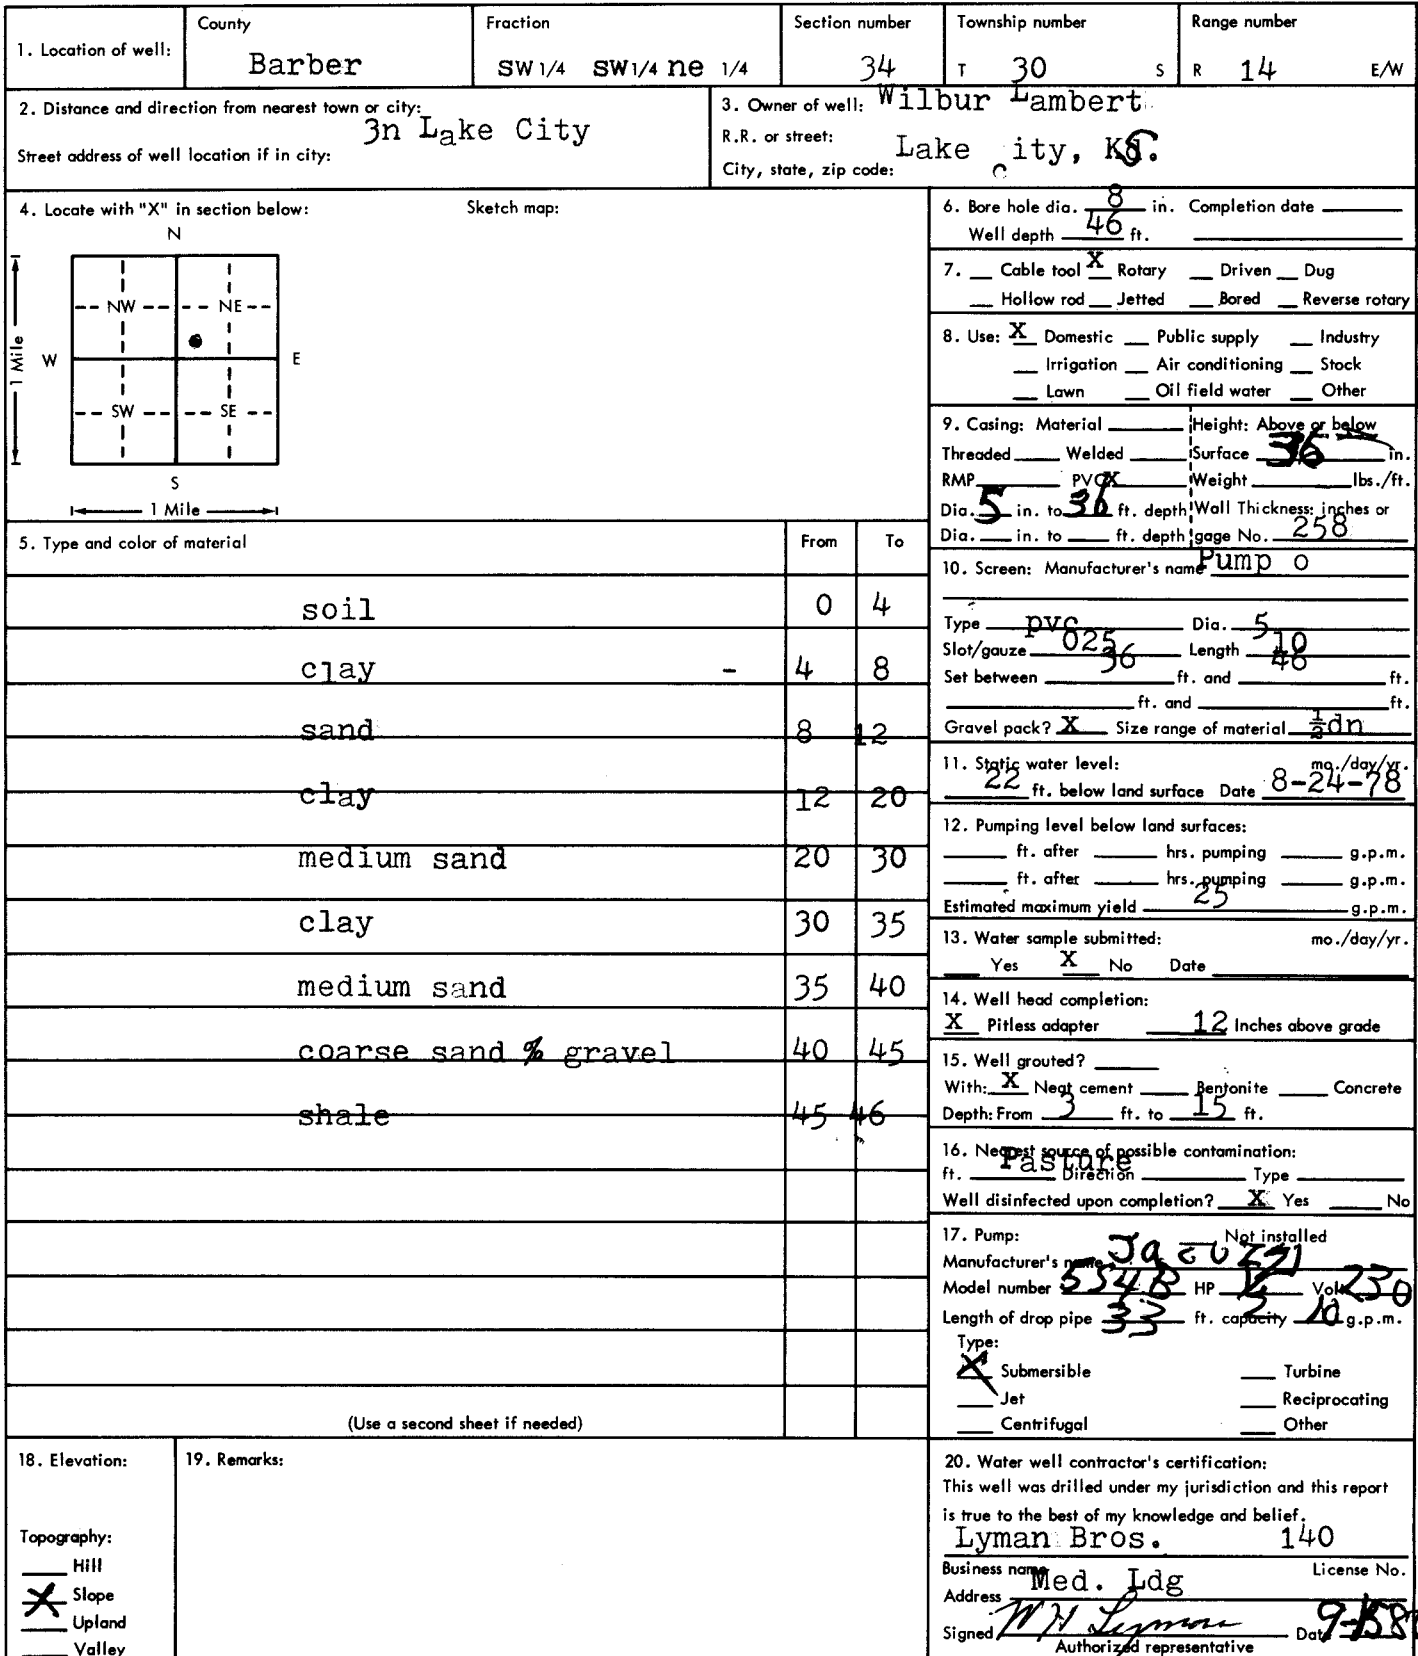 1. Location of well: County Barber Fraction SW 1/4 SW 1/4 ne 1/4 Section number 34 Township number T 30 S Range number R 14 E/W
2. Distance and direction from nearest town or city: 3n Lake City
Street address of well location if in city:
3. Owner of well: Wilbur Lambert
R.R. or street:
City, state, zip code: Lake City, KS.
4. Locate with "X" in section below: Sketch map:
N
NW NE
W E
1 Mile
SW SE
S
1 Mile
5. Type and color of material From To
soil 0 4
clay - 4 8
sand 8 12
clay 12 20
medium sand 20 30
clay 30 35
medium sand 35 40
coarse sand % gravel 40 45
shale 45 46
(Use a second sheet if needed)
6. Bore hole dia. 8 in. Completion date
Well depth 46 ft.
7. Cable tool X Rotary Driven Dug
Hollow rod Jetted Bored Reverse rotary
8. Use: X Domestic Public supply Industry
Irrigation Air conditioning Stock
Lawn Oil field water Other
9. Casing: Material Height: Above or below
Threaded Welded Surface 36 in.
RMP PVC X Weight lbs./ft.
Dia. 5 in. to 36 ft. depth Wall Thickness: inches or
Dia. in. to ft. depth gage No. 258
10. Screen: Manufacturer's name Pump o
Type pvc Dia. 5
Slot/gauze 025 Length 10
Set between 36 ft. and 46 ft.
ft. and ft.
Gravel pack? X Size range of material ½dn
11. Static water level: mo./day/yr.
22 ft. below land surface Date 8-24-78
12. Pumping level below land surfaces:
ft. after hrs. pumping g.p.m.
ft. after hrs. pumping g.p.m.
Estimated maximum yield 25 g.p.m.
13. Water sample submitted: mo./day/yr.
Yes X No Date
14. Well head completion:
X Pitless adapter 12 Inches above grade
15. Well grouted?
With: X Neat cement Bentonite Concrete
Depth: From 3 ft. to 15 ft.
16. Nearest source of possible contamination:
ft. Pasture Direction Type
Well disinfected upon completion? X Yes No
17. Pump: Not installed
Manufacturer's name Jacuzzi
Model number 5S4B HP 1/2 Volts 230
Length of drop pipe 33 ft. capacity 10 g.p.m.
Type:
X Submersible Turbine
Jet Reciprocating
Centrifugal Other
18. Elevation:
Topography:
Hill
X Slope
Upland
Valley
19. Remarks:
20. Water well contractor's certification:
This well was drilled under my jurisdiction and this report
is true to the best of my knowledge and belief.
Lyman Bros. 140
Business name License No.
Address Med. Ldg
Signed W H Lyman Date
Authorized representative